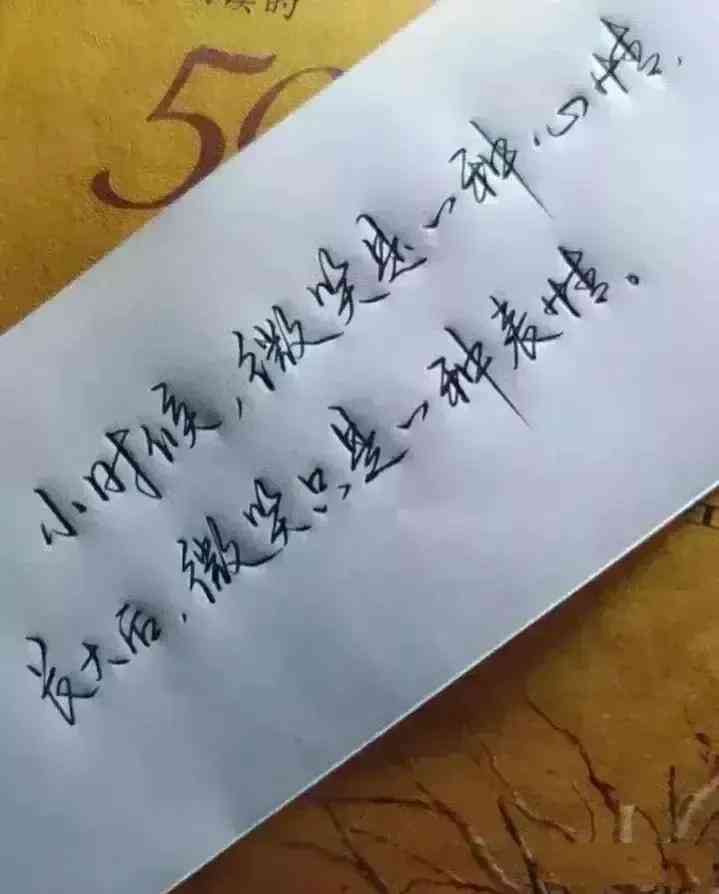 读的
50
小时候,微笑是一种心情,
长大后,微笑只是一种表情。